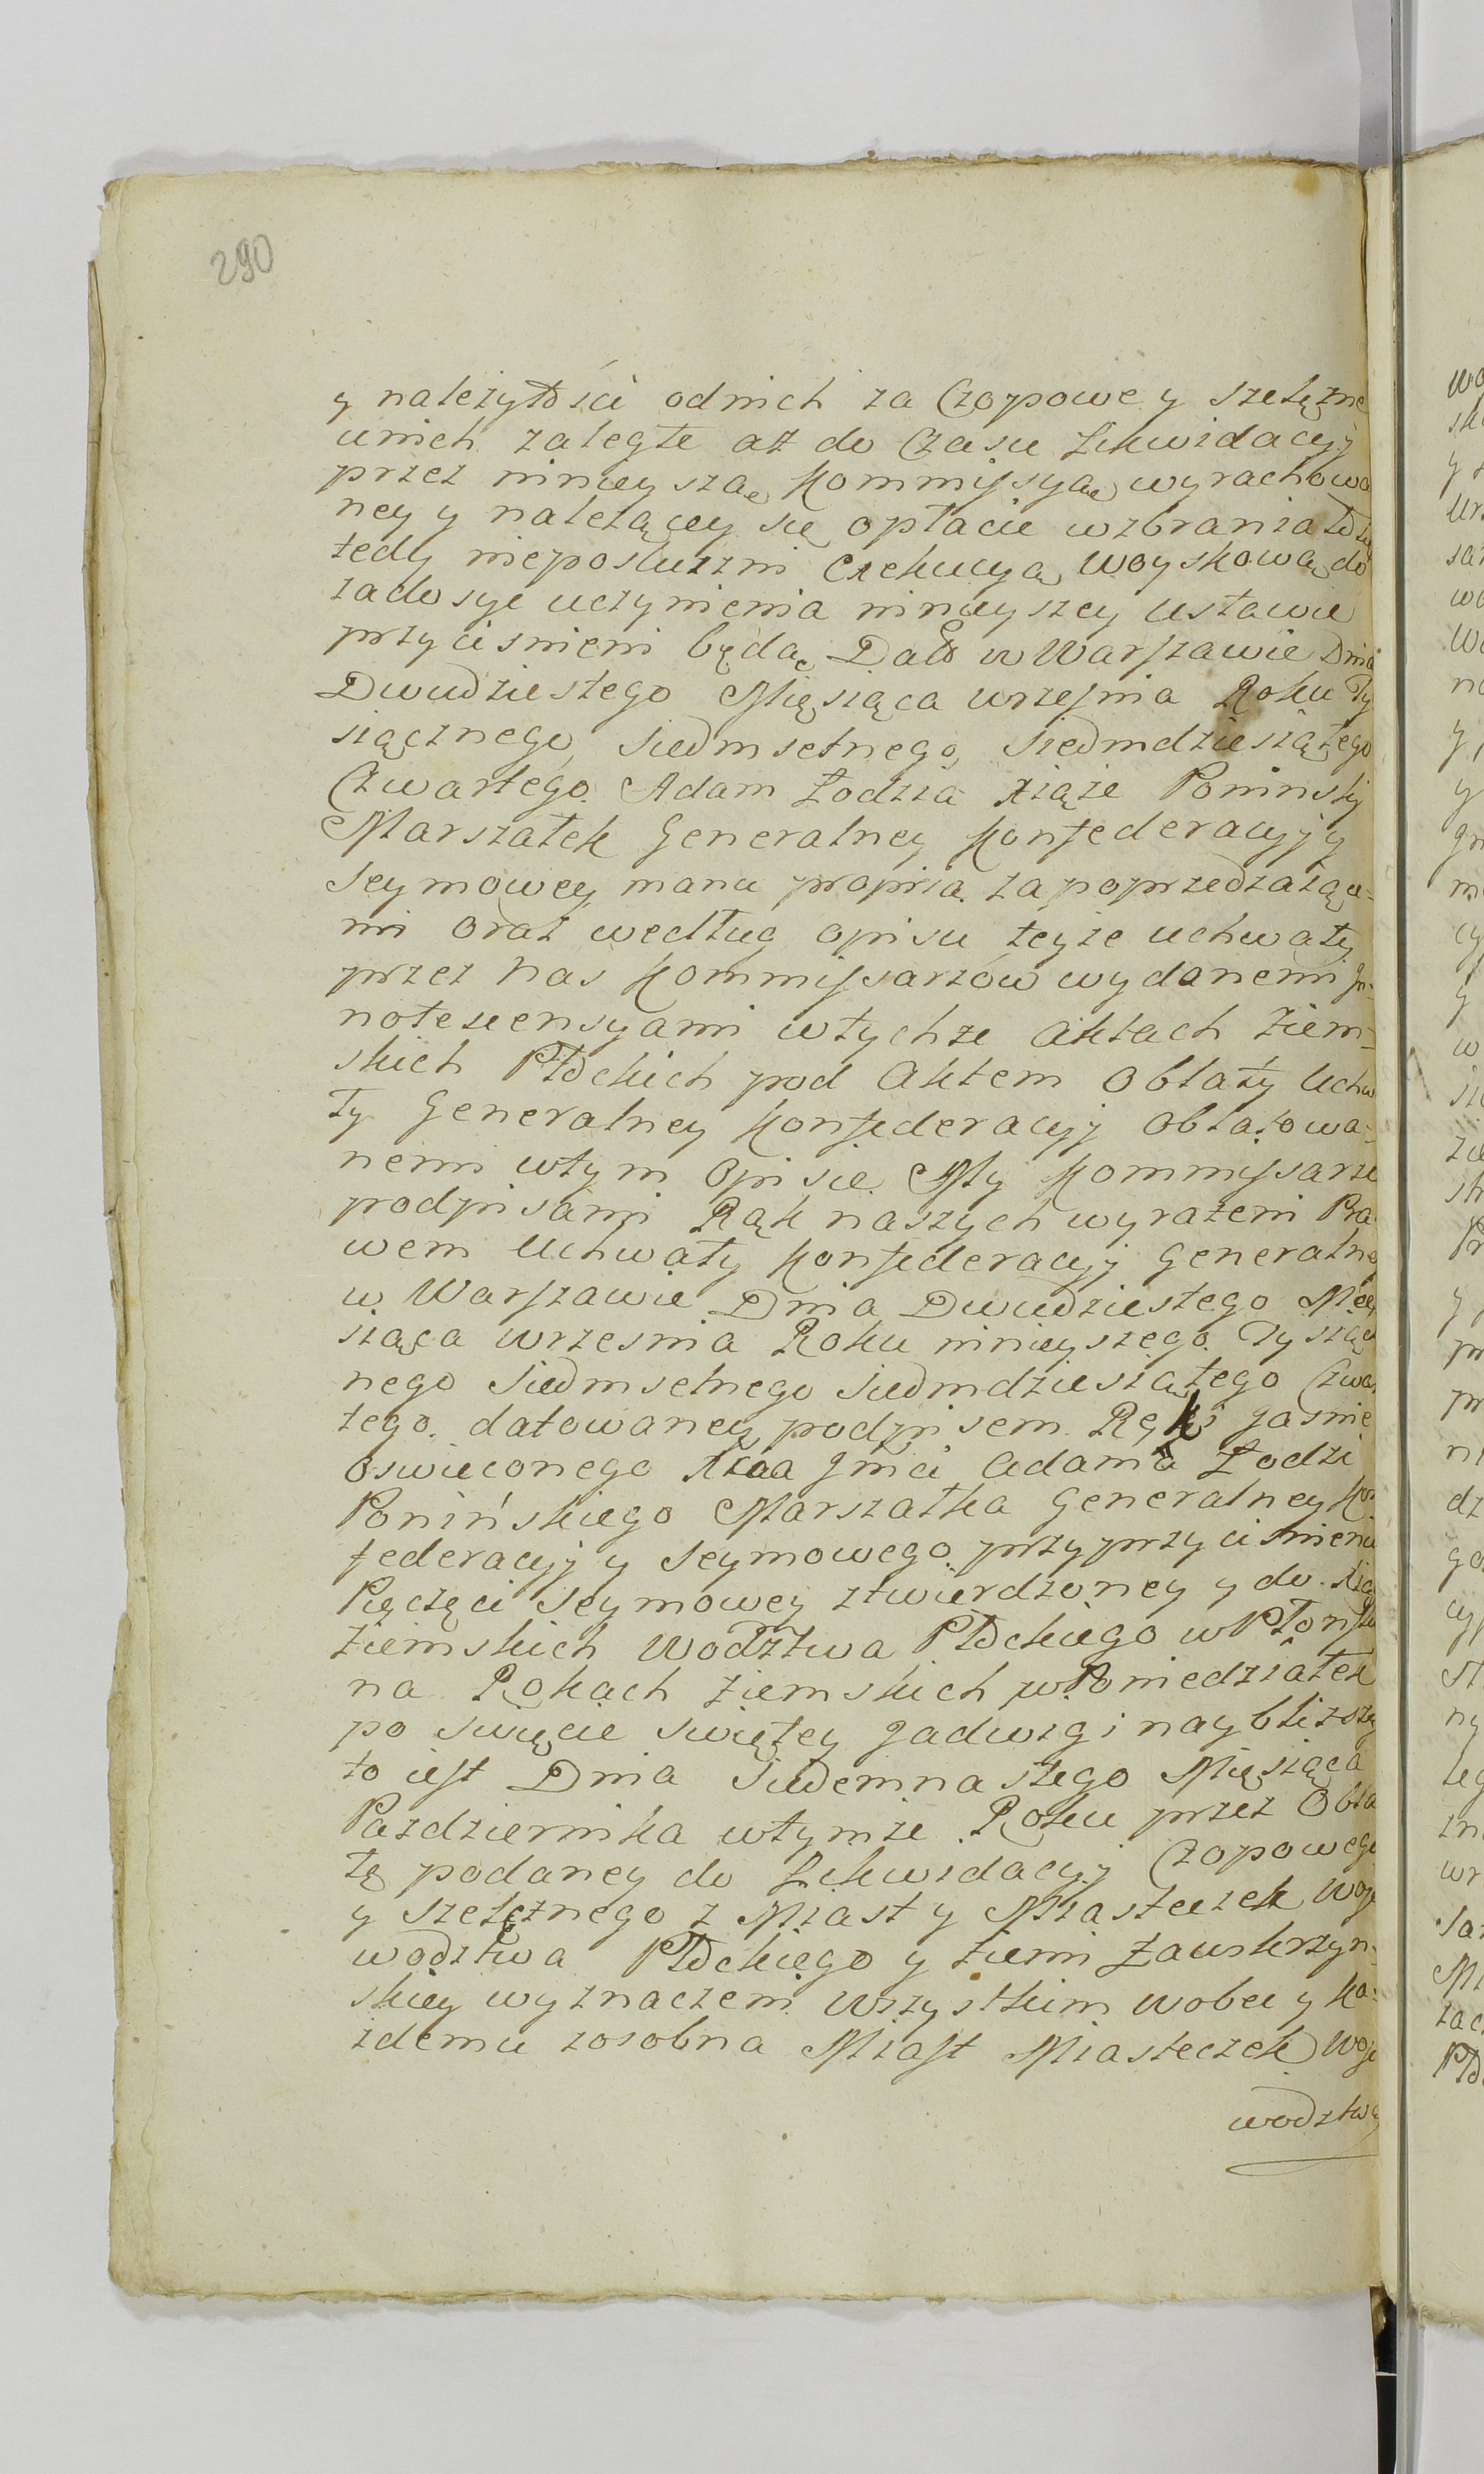 290
y należytości odnich za Czopowe y szelęzne
unich zaległe aż do Czasu Likwidacyj
przez ninieyszą Kommissyą wyrachowa
ney y należącey się opłacie wzbraniało się
tedy nieposłuszni Exekucyą Woyskową do
zadosyc uczynienia ninieyszey ustawie
przycisnieni będą Dało w Warszawie Dnia
Dwudziestego Miesiąca wrzesnia Roku Ty
siącznego siedmsetnego siedmdziesiątego
Czwartego. Adam Łodzia Xiąże Poninsky
Marszałek Generalney Konfederacyj y
Seymowey manu propria. zapoprzedzaiące-
mi oraz według opisu teyże uchwały
przez Nas Kommissarzow wydanemi In-
notescensyami wtychże Aktach Ziem-
skich Płockich pod Aktem Oblaty Uchwa
ły Generalney Konfederacyj Oblatowa-
nemi wtym opisie. My Kommissarze
podpisami Rąk naszych wyrażeni Pra
wem Uchwały Konfederacyj Generalney
w Warszawie Dnia Dwudziestego Mie
siąca wrzesnia Roku ninieyszego. Tysiącz
nego Siedmsetnego Siedmdziesiątego Czwar
tego. datowaney podpisem Ręki Jasnie
Oswieconego Xcia Jmci Adama Łodzi
Ponińskiego Marszałka Generalney Kon
federacyj y Seymowego przy przycisnieniu
Pięczęci Seymowey ztwierdzoney y do Xiąg
Ziemskich Wodztwa Płockiego w Płonsku
na Rokach Ziemskich w Poniedziałek
po Swięcie Swiętey Jadwigi nayblizszy
to iest Dnia Siedemnastego Miesiąca
Pazdziernika wtymże Roku przez Obla
tę podaney do Likwidacyj Czopowego
y szelęznego z Miast y Miasteczek Woje
wodztwa Płockiego y Ziemi Zawskrzyn-
skiey wyznaczeni. Wszystkim wobec y Ka-
zdemu zosobna Miast Miasteczek Woje
wodztwa